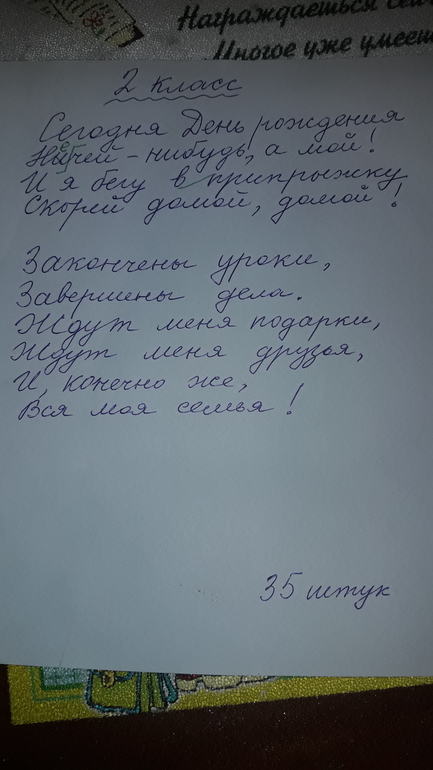 Награждаешься сей
Многое уже умееш
2 класс
Сегодня День рождения
Не чей-нибудь, а мой!
И я бегу в припрыжку
Скорей домой, домой!
Закончены уроки,
Завершены дела.
Ждут меня подарки,
Ждут меня друзья,
И, конечно же,
Вся моя семья!
35 штук